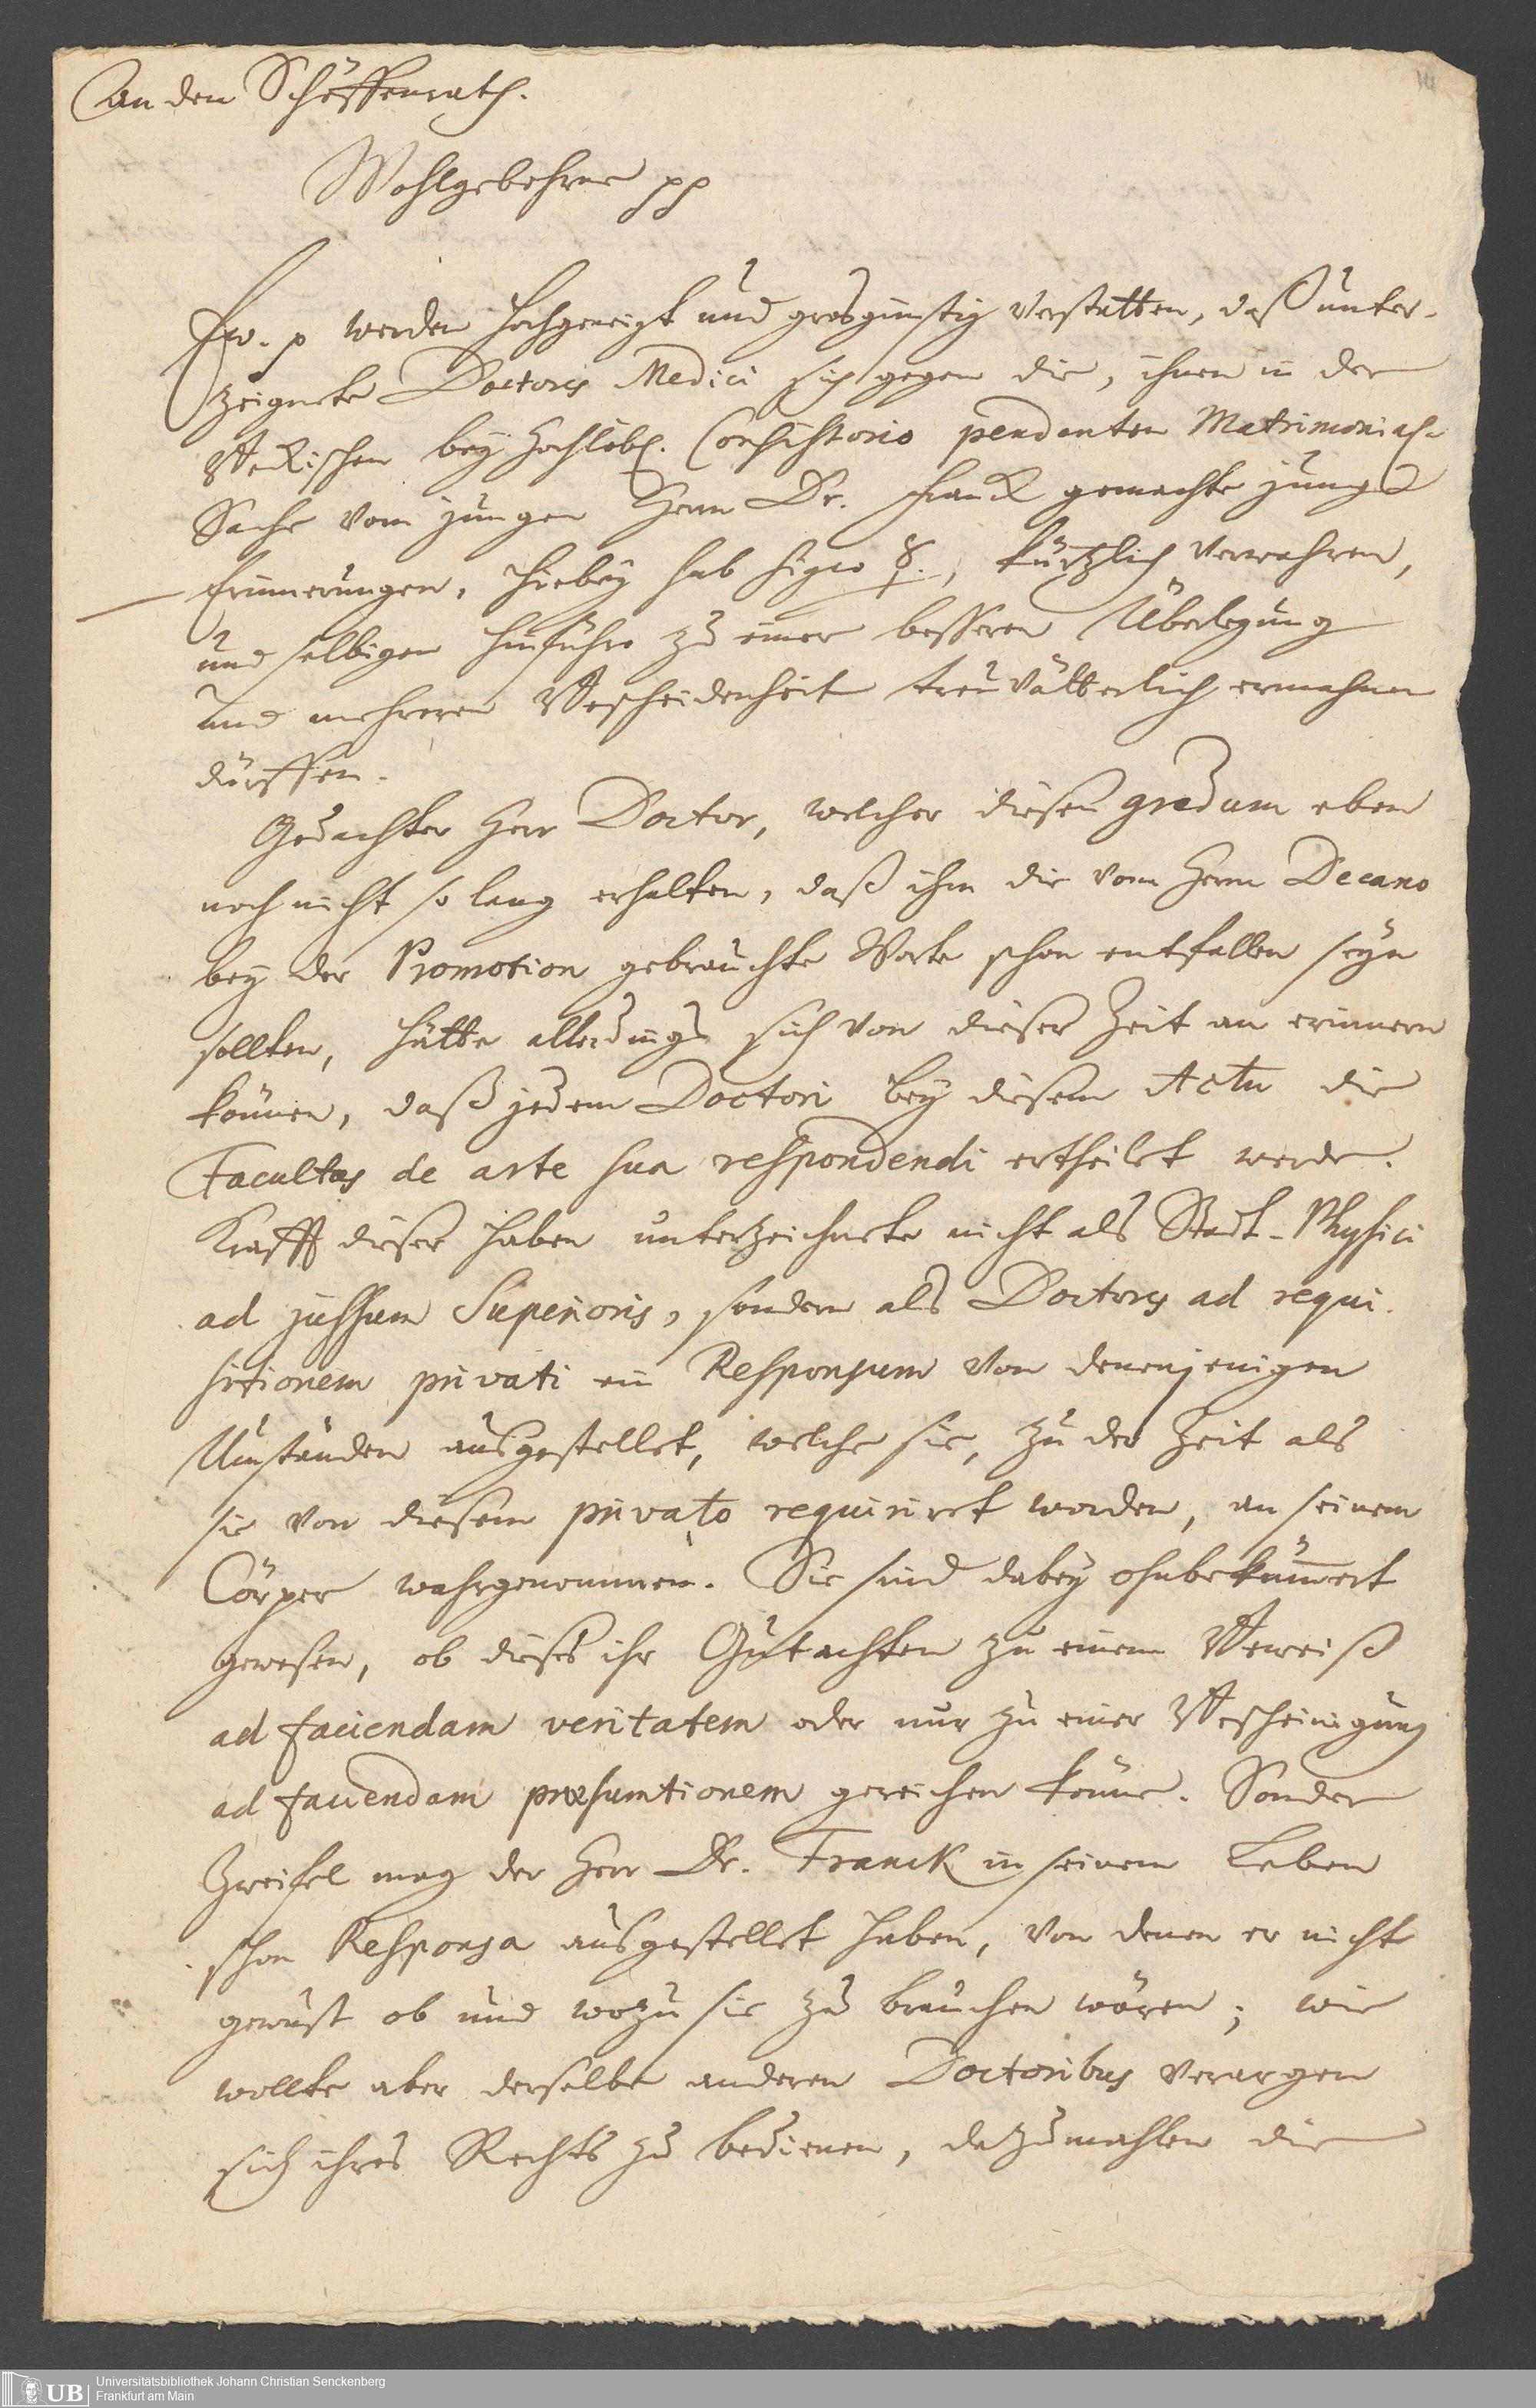 An den Schöffenrath.
Wohlgebohrne pp
Ew. p werden hochgeneigt und grosgünstig verstatten, daß unter-
zeignete Doctores Medici sich gegen die, ihnen in der
bey Hochlöbl. Consistorio pendenten Matrimonial-
Sache vom jungen Herrn Dr. Franck gemachte jüngst
Erinnerungen, hiebey sub signo ☿., kürtzlich verwahren,
und selbigen hinführo zu einer besseren Überlegung
und mehreren Bescheidenheit treuvätterlich ermahnen
dürffen.
Gedachter Herr Doctor, welcher diesen gradum eben
noch nicht so lang erhalten, daß ihm die vom Herrn Decano
bey der Promotion gebrauchte Worte schon entfallen seyn
sollten, hätte allerdings sich von dieser Zeit an erinnern
können, daß jedem Doctori bey diesem Actu die
Facultas de arte sua respondendi ertheilet werde.
Krafft dieser haben unterzeichnete nicht als Stadt-Physici
ad jussum Superioris, sondern als Doctores ad requi-
sitionem privati ein Responsum von denenjenigen
Umständen ausgestellet, welche sie, zu der Zeit als
sie von diesem privato requiriret worden, an seinem
Cörper wahrgenommen. Sie sind dabey ohnbekümert
gewesen, ob dieses ihr Gutachten zu einem Beweiß
ad faciendam veritatem oder nur zu einer Bescheinigung
ad faciendam præsumtionem gereichen könne. Sonder
Zweifel mag der Herr Dr. Franck in seinem Leben
schon Responsa ausgestellet haben, von denen er nicht
gewust ob und wozu sie zu brauchen wären; wie
wollte aber derselbe anderen Doctoribus verargen
sich ihres Rechts zu bedienen, dazumahlen die
UB Universitätsbibliothek Johann Christian Senckenberg
Frankfurt am Main